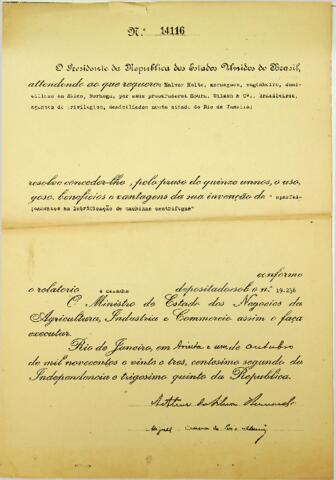 N.º 14116
O Presidente da Republica dos Estados Unidos do Brasil,
attendendo ao que requereu Halvor Holte, norueguez, engenheiro, domi-
ciliado em Skien, Noruega, por seus procuradores Moura, Wilson & Cº, brasileiros,
agentes de privilegios, domiciliados nesta cidade do Rio de Janeiro;
resolve conceder-lhe, pelo praso de quinze annos, o uso,
goso, beneficios e vantagens da sua invenção de "aperfei-
çoamentos na lubrificação de machinas centrifugas"
conforme
o relatorio e desenho depositados sob o n.º 19.236
O Ministro de Estado dos Negocios da
Agricultura, Industria e Commercio assim o faça
executar.
Rio de Janeiro, em trinta e um de outubro
de mil novecentos e vinte e tres, centesimo segundo da
Independencia e trigesimo quinto da Republica.
Arthur da Silva Bernardes
Miguel Calmon du Pin e Almeida